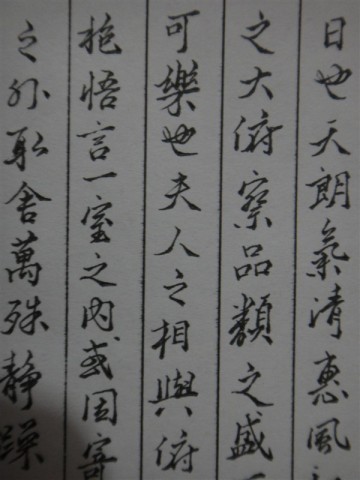 日也天朗氣清惠風
之大俯察品類之盛
可樂也夫人之相與俯
抱悟言一室之內或因寄
之外取舍萬殊靜躁